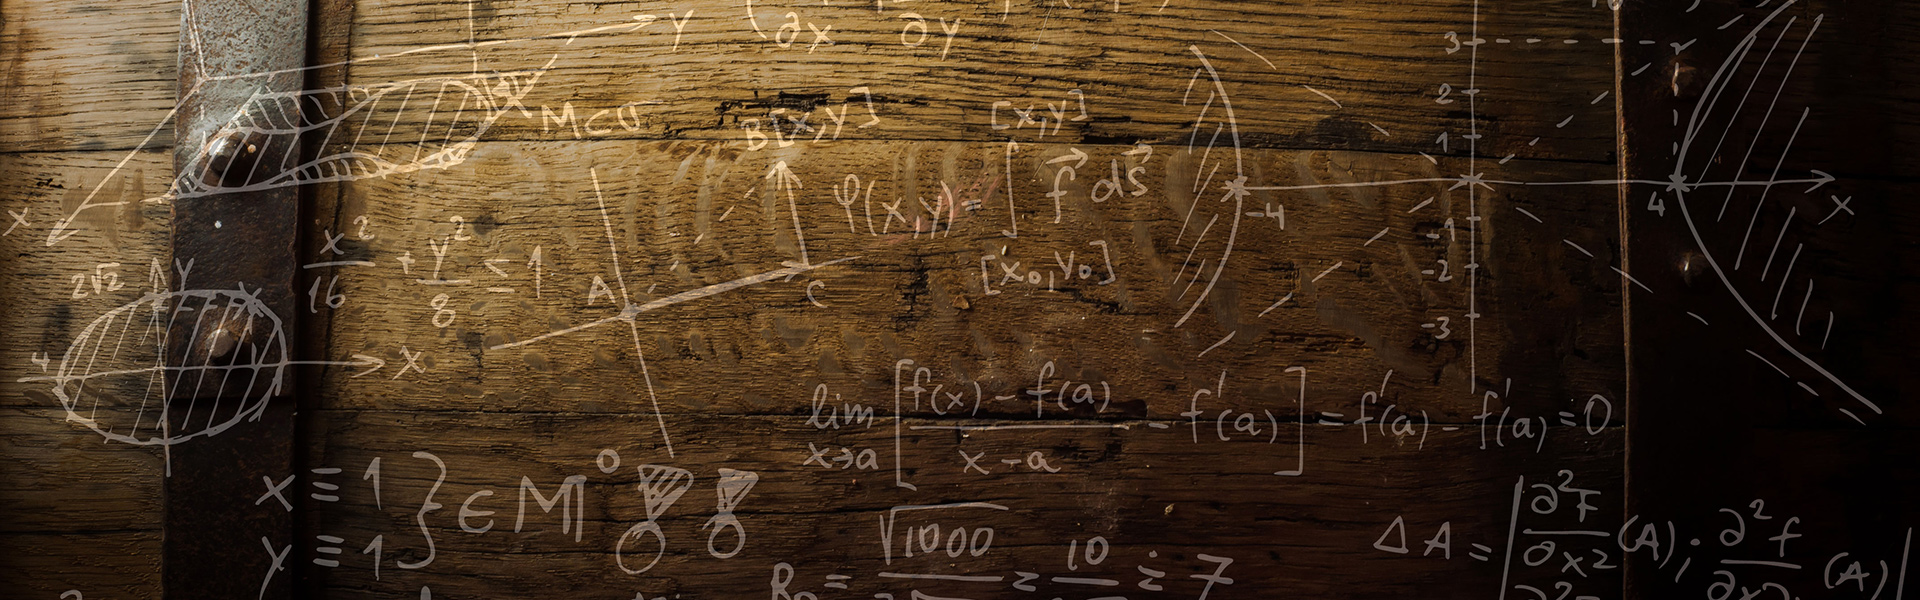 Y
∂x ∂y
3
2
1
-1
-2
-3
MCO
B[x,y]
[x,y]
φ(x,y) = ∫ f⃗ ds⃗
[x₀,y₀]
-4
4
x
x
x²/16 + y²/8 ≤ 1
2√2
y
4
x
A
C
lim x→a [ (f(x) - f(a)) / (x - a) - f'(a) ] = f'(a) - f'(a) = 0
x ≡ 1
y ≡ 1 } ∈ M
√1000
10
7
ΔA = | ∂²f/∂x² (A); ∂²f (A) |